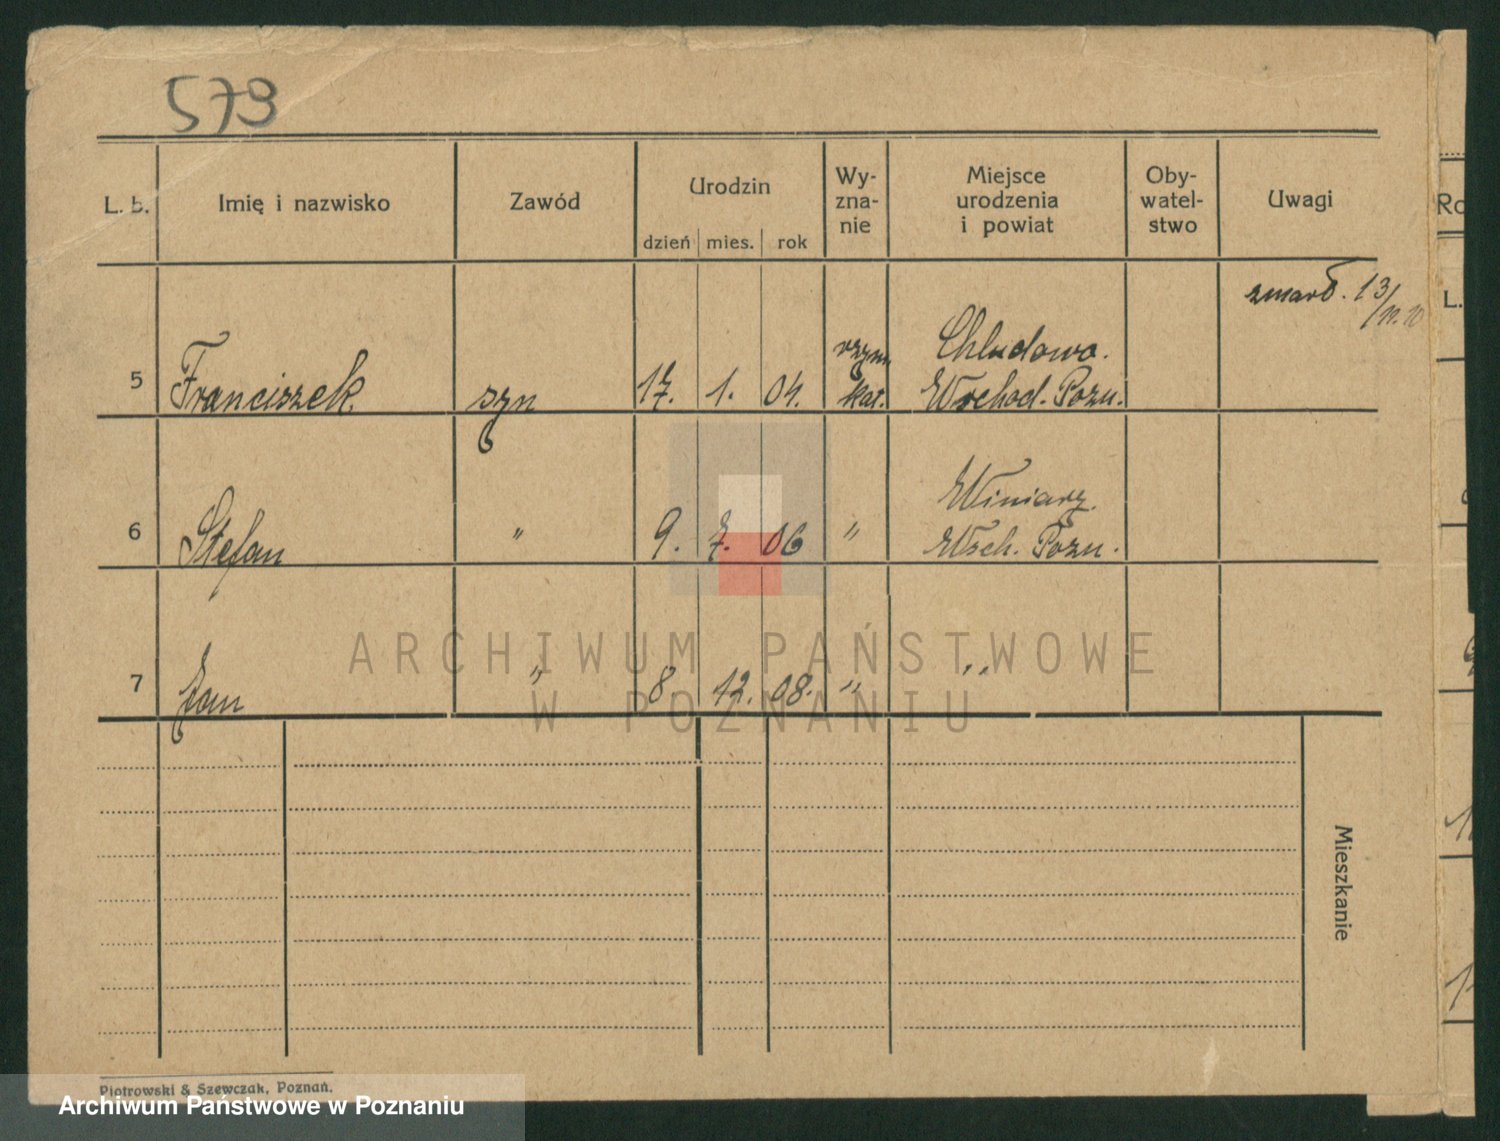 573
L. b. Imię i nazwisko Zawód Urodzin Wy-zna-nie Miejsce urodzenia i powiat Oby-watel-stwo Uwagi
dzień mies. rok
zmarł. 13/
5 Franciszek syn 17. 1. 04. rzym. kat. Chludowo. Wschod. Pozn.
6 Stefan " 9. 7. 06 " Winiary. Wsch. Pozn.
7 Jan " 8. 12. 08. " "
Mieszkanie
ARCHIWUM PAŃSTWOWE
W POZNANIU
Piotrowski & Szewczak, Poznań.
Archiwum Państwowe w Poznaniu
L.